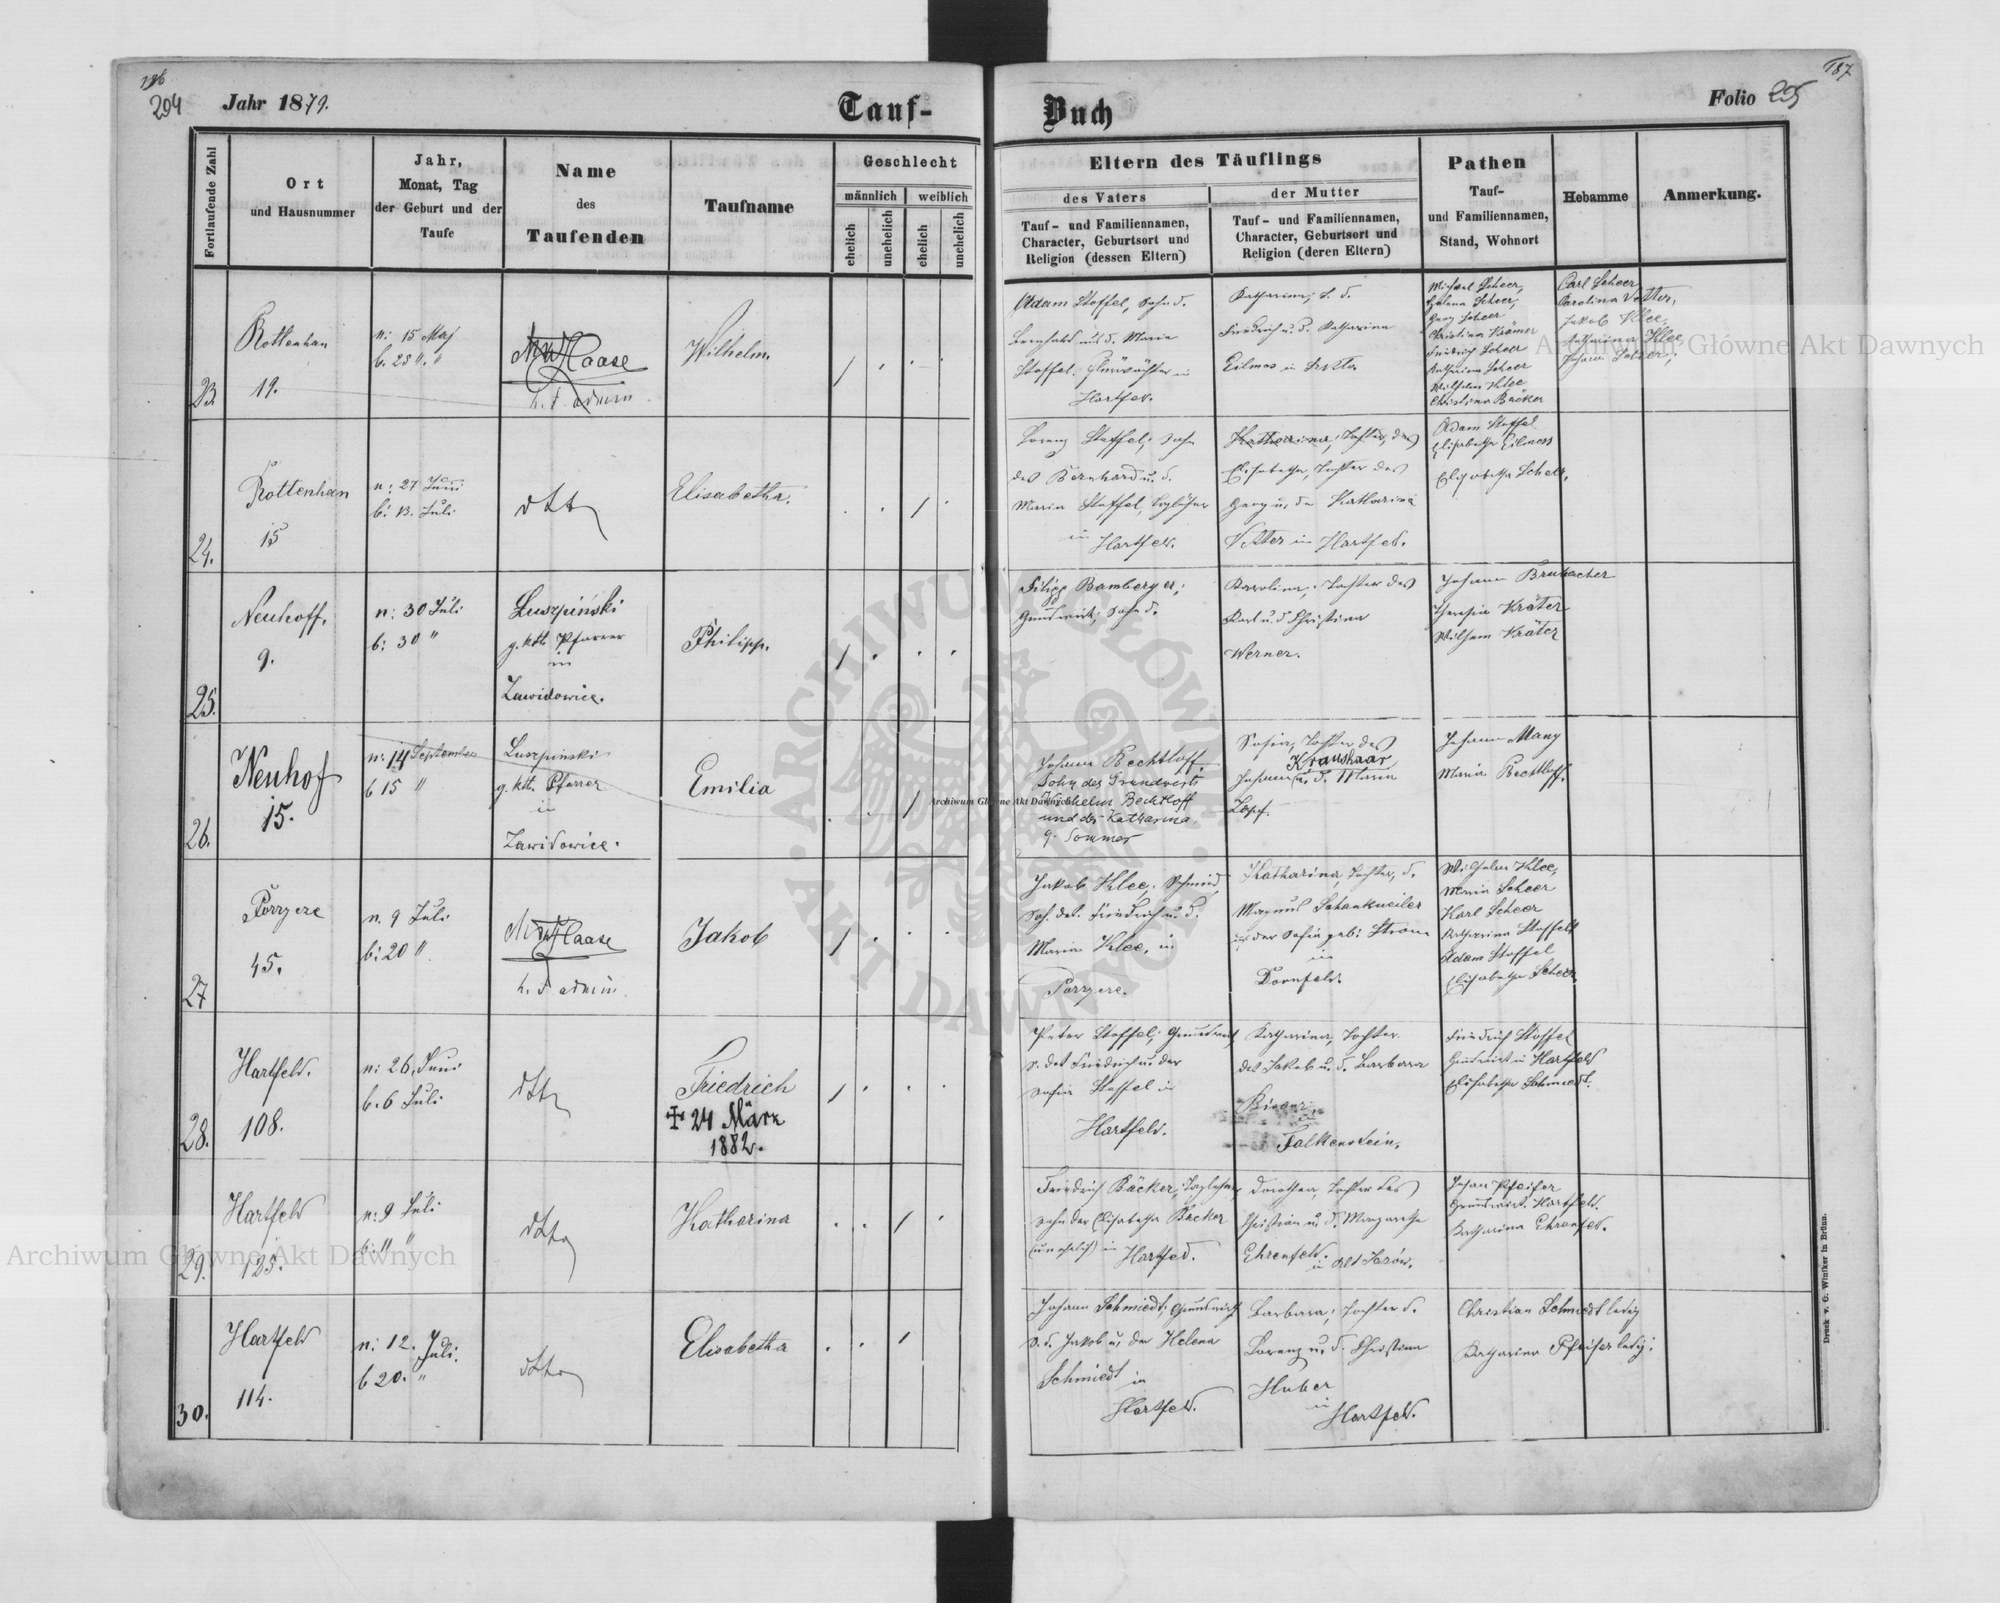 136
294
Jahr 1879.
Tauf-
Buch
Folio 295
187
Fortlaufende Zahl
Ort
und Hausnummer
Jahr,
Monat, Tag
der Geburt und der
Taufe
Name
des
Taufenden
Taufname
Geschlecht
männlich
weiblich
ehelich
unehelich
ehelich
unehelich
Eltern des Täuflings
des Vaters
Tauf- und Familiennamen,
Character, Geburtsort und
Religion (dessen Eltern)
der Mutter
Tauf- und Familiennamen,
Character, Geburtsort und
Religion (deren Eltern)
Pathen
Tauf-
und Familiennamen,
Stand, Wohnort
Hebamme
Anmerkung.
23
Rottenhan
19.
n: 15 Maj
b. 25 ". "
Haase
Wilhelm
Adam Stoffel, Sohn d.
Bernhard und d. Maria
Stoffel, in
Hartfeld.
Katharina, T. d.
Friedrich u. d. Katharina
Michael Scheer,
Helena Scheer,
Georg Scheer
Christina Krämer
Friedrich Scheer
Katharina Scheer
Wilhelm Klee
Christina Bäcker
Carl Scheer
Carolina Vetter,
Jakob Klee,
Katharina Klee
24.
Rottenhan
15
n: 27 Juni
b: 13. Juli
dtto
Elisabetha.
Lorenz Stoffel, Sohn
des Bernhard u. d.
Maria Stoffel,
in Hartfeld.
Katharina, Tochter, des
Elisabetha, Tochter des
Georg u. der Katharina
Vetter in Hartfeld.
Adam Stoffel
Elisabetha Eilmess
Elisabetha Scheer,
25.
Neuhoff,
9.
n: 30 Juli
b: 30 "
Luszpiński
g. kth. Pfarrer
in
Zawidowice.
Philipp.
Filipp Bamberger,
Grundwirth, Sohn d.
Karolina, Tochter des
Karl u. d. Christina
Werner.
Johann Brubacher
Theresia Kräter
Wilhelm Kräter
26.
Neuhof
15.
n: 14 September
b 15 "
Luszpinski
g. kth. Pfarrer
in
Zawidowice.
Emilia
Johann Bechtloff,
Sohn des Grundwirts
Wilhelm Bechtloff
und der Katharina
g. Sommer
Sofia, Tochter des
Kraushaar
Johann u. d. Maria
Johann Mang
Maria Bechtloff.
27
Porzycze
45.
n. 9 Juli
b: 20 "
Haase
Jakob
Jakob Klee, Schmied,
Soh. des Friedrich u. d.
Maria Klee, in
Porzycze.
Katharina, Tochter, d.
Magnus Schankweiler
u. der Sofia geb: Strom
in
Dornfeld.
Wilhelm Klee,
Maria Scheer
Karl Scheer
Katharina Stoffel
Adam Stoffel
Elisabetha Scheer
28.
Hartfeld.
108.
n: 26. Juni
b. 6 Juli
dtto
Friedrich
✝ 24 März
1882.
Peter Stoffel, Grundwirth,
S. des Friedrich u. der
Sofia Stoffel in
Hartfeld.
Katharina, Tochter
des Jakob u. d. Barbara
Falkenstein.
Friedrich Stoffel
Grundwirt in Hartfeld
Elisabetha Schmiedt.
29.
Hartfeld
125.
n: 9 Juli
b: 11 "
dtto
Katharina
Friedrich Bäcker, Taglöhner,
Sohn der Elisabetha Bäcker
(unehelich) in Hartfeld.
Dorothea, Tochter des
Christian u. d. Margaretha
Ehrenfeld.
in Alt Jazów.
Johann Pfeifer
Grundwirt. Hartfeld.
Katharina Ehrenfeld.
30.
Hartfeld
114.
n: 12. Juli.
b 20. "
dtto
Elisabetha
Johann Schmiedt, Grundwirth
S. d. Jakob u. der Helena
Schmiedt in
Hartfeld.
Barbara, Tochter d.
Lorenz u. d. Christina
Huber
in
Hartfeld.
Christian Schmiedt ledig
Katharina Pfeifer ledig.
Druck v. C. Winiker in Brünn.
Archiwum Główne Akt Dawnych
Archiwum Główne Akt Dawnych
Archiwum Główne Akt Dawnych
ARCHIWUM GŁÓWNE · AKT DAWNYCH ·